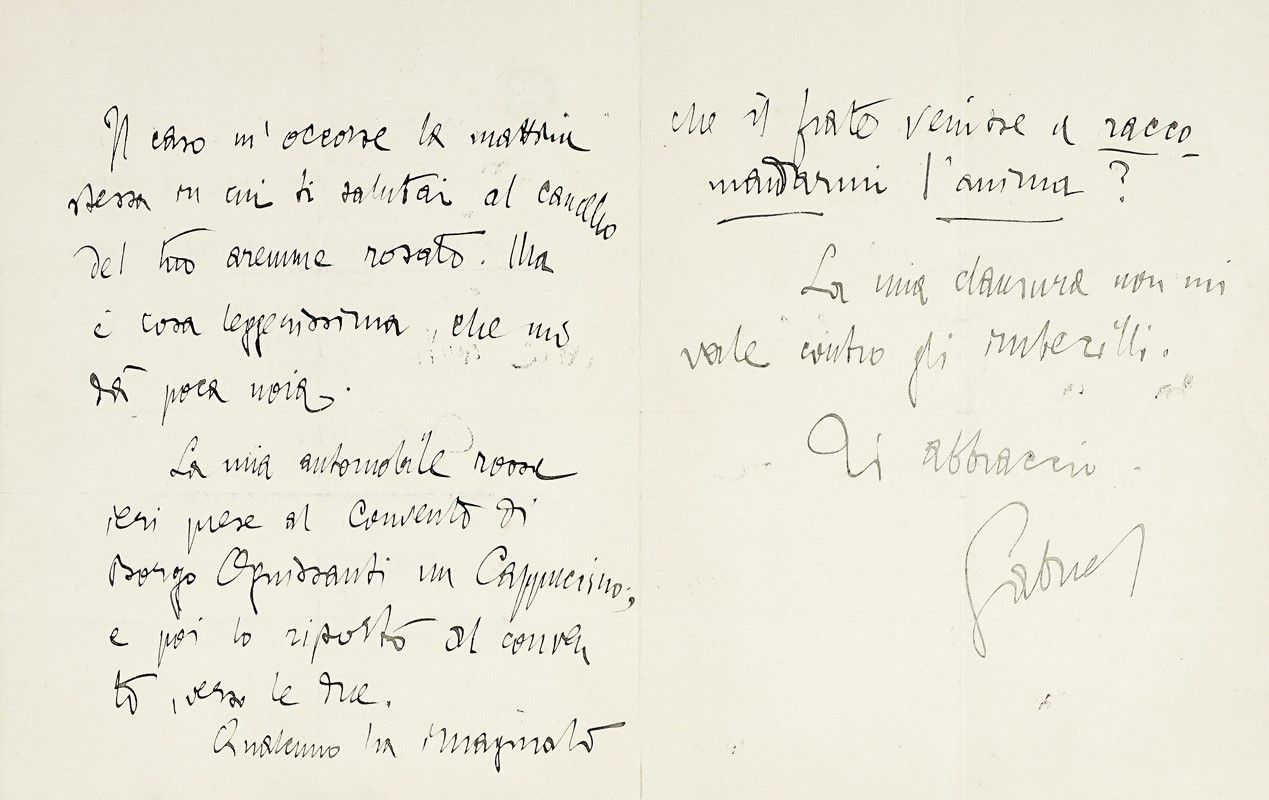 Il caso m' occorse la mattina
stessa in cui ti salutai al cancello
del tuo aremme rosato. Ma
è cosa leggerissima, che mi
dà poca noia.
La mia automobile rossa
ieri prese al Convento di
Borgo Ognissanti un Cappuccino;
e poi lo riportò al conven
to, verso le due.
Qualcuno ha imaginato
che il frate venisse a racco-
mandarmi l'anima?
La mia clausura non mi
vale contro gli imbecilli.
Ti abbraccio.
Gabriel